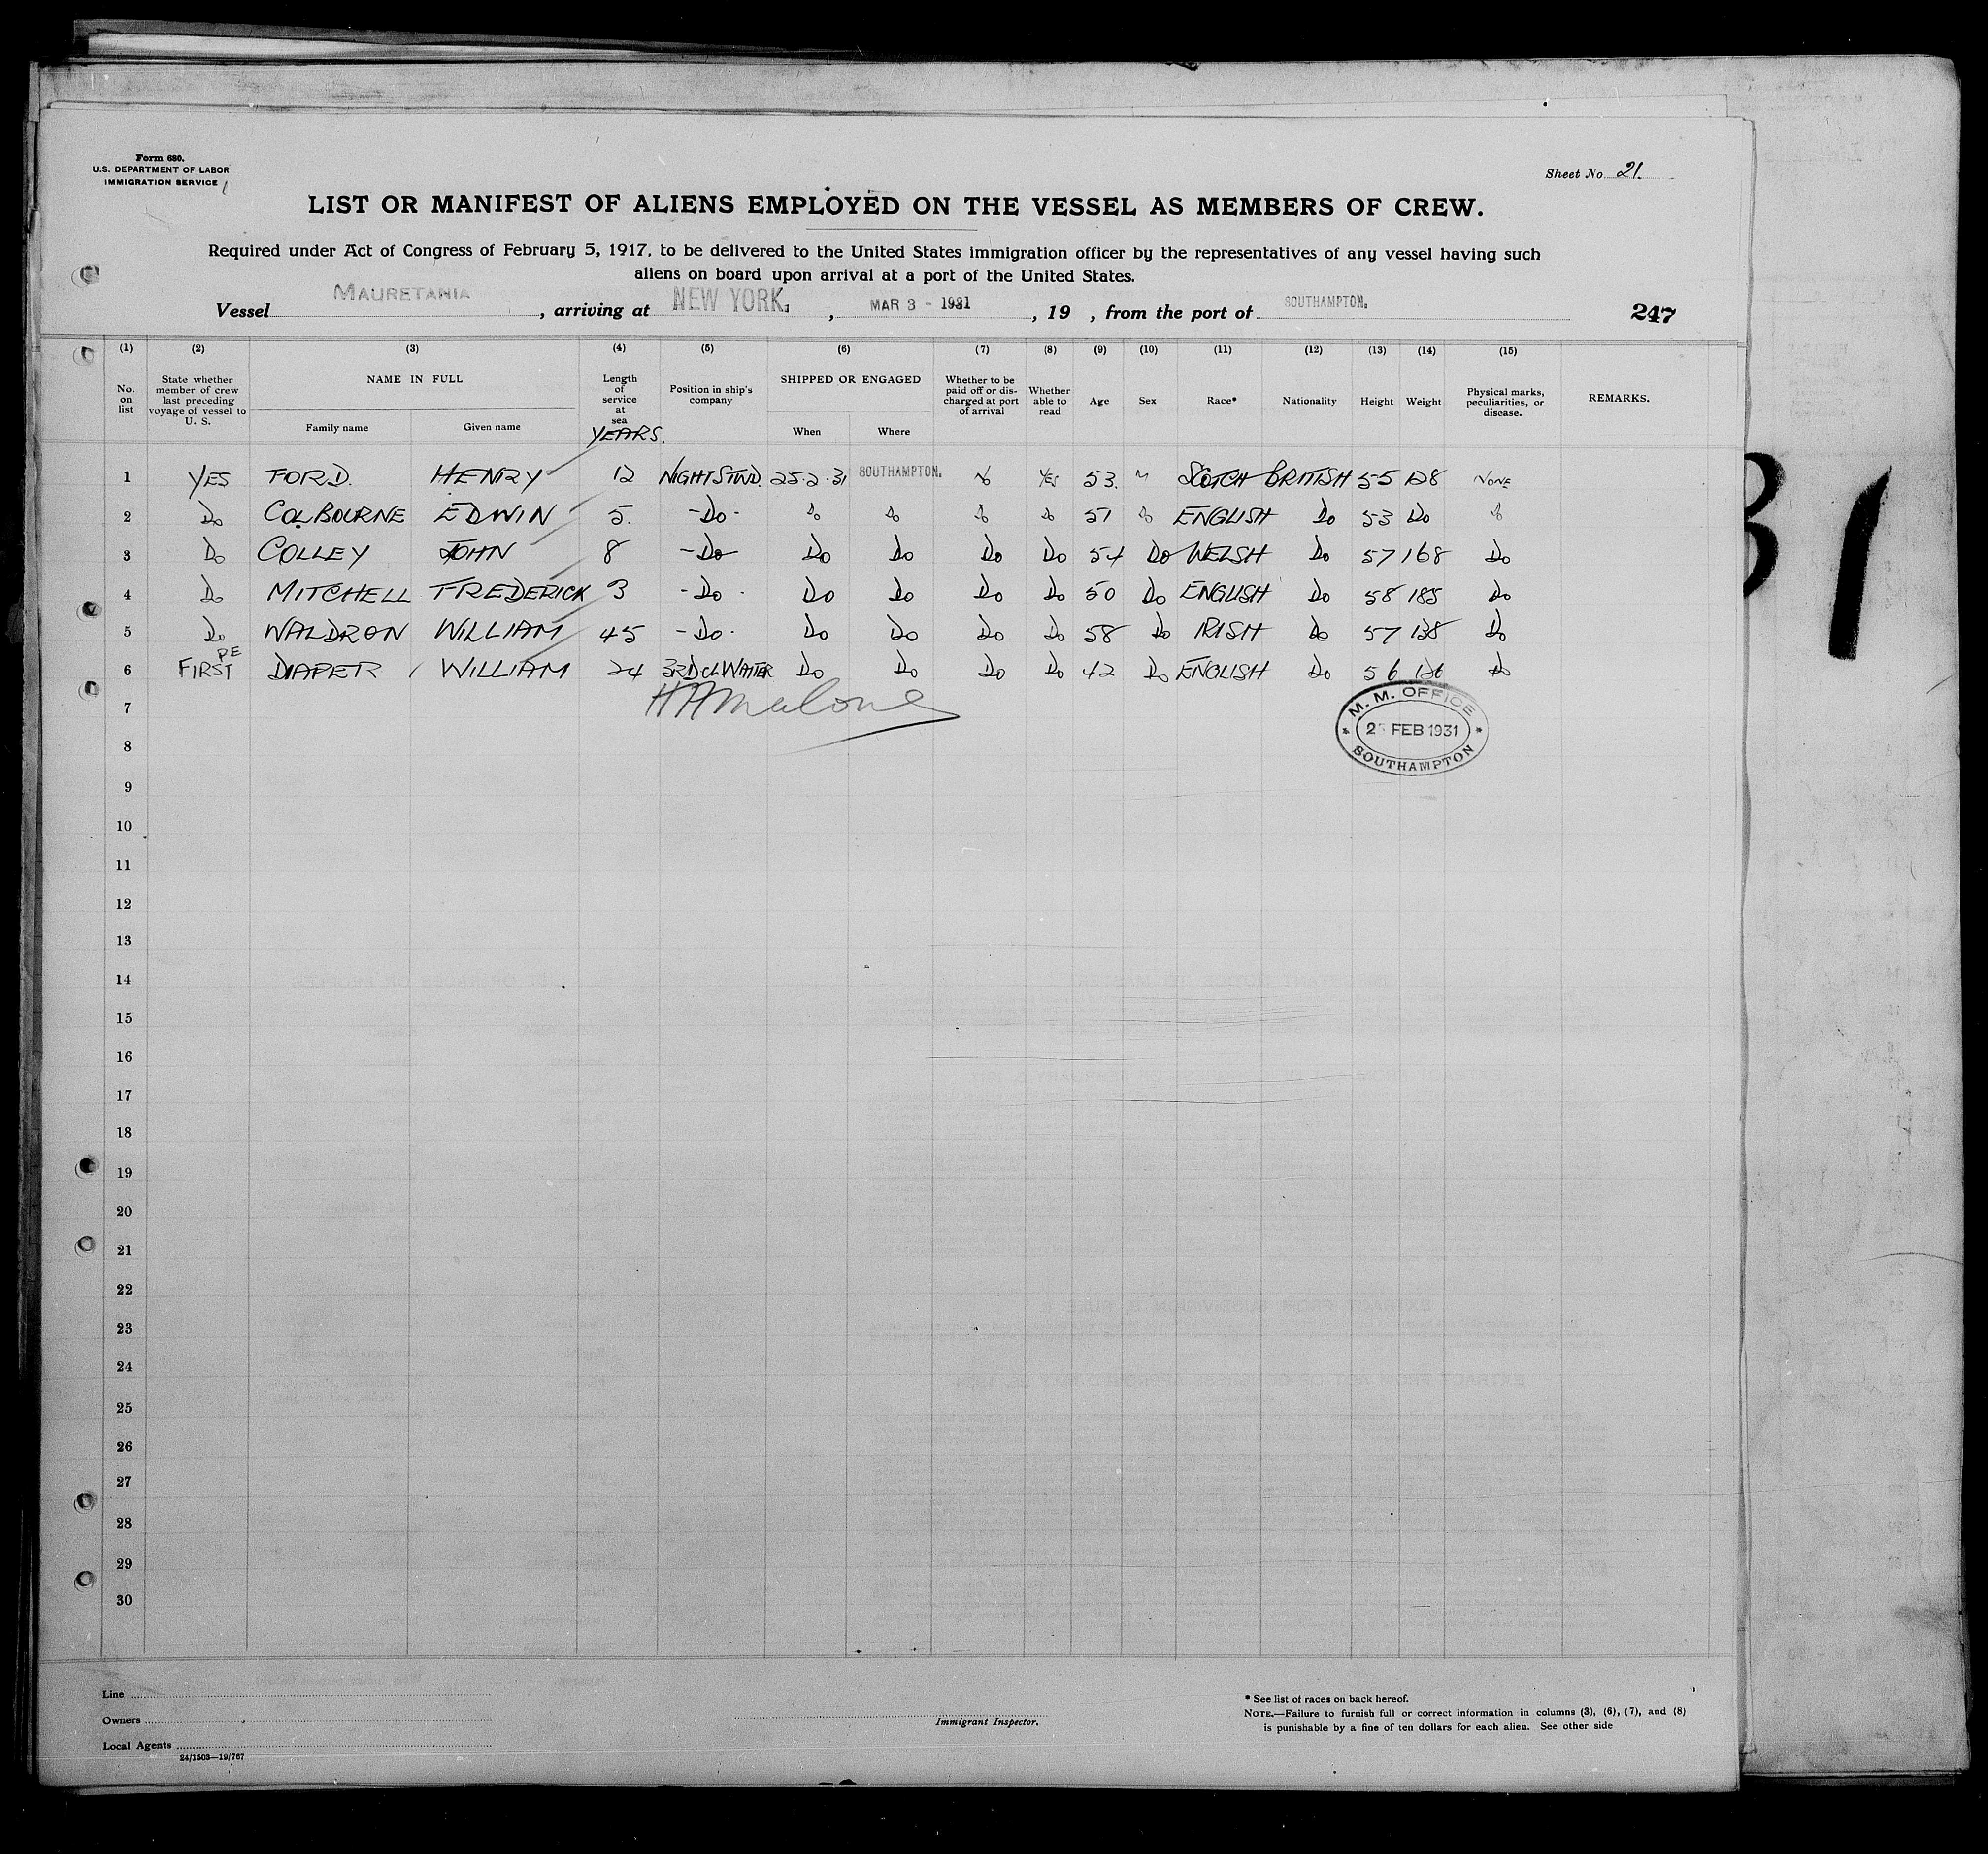 Form 680.
U.S. DEPARTMENT OF LABOR
IMMIGRATION SERVICE
Sheet No. 21.
LIST OR MANIFEST OF ALIENS EMPLOYED ON THE VESSEL AS MEMBERS OF CREW.
Required under Act of Congress of February 5, 1917, to be delivered to the United States immigration officer by the representatives of any vessel having such
aliens on board upon arrival at a port of the United States.
Vessel MAURETANIA, arriving at NEW YORK, MAR 3 - 1931, 19 , from the port of SOUTHAMPTON. 247
(1) (2) (3) (4) (5) (6) (7) (8) (9) (10) (11) (12) (13) (14) (15)
No. on list State whether member of crew last preceding voyage of vessel to U. S. NAME IN FULL Family name Given name Length of service at sea YEARS. Position in ship's company SHIPPED OR ENGAGED When Where Whether to be paid off or discharged at port of arrival Whether able to read Age Sex Race* Nationality Height Weight Physical marks, peculiarities, or disease. REMARKS.
1 YES FORD. HENRY 12 NIGHT STWD. 25.2.31 SOUTHAMPTON. YES 53. M SCOTCH BRITISH 55 128 NONE
2 Do COLBOURNE EDWIN 5. -Do- Do Do Do Do 51 Do ENGLISH Do 53 Do Do
3 Do COLLEY JOHN 8 -Do- Do Do Do Do 54 Do WELSH Do 57 168 Do
4 Do MITCHELL FREDERICK 3 -Do- Do Do Do Do 50 Do ENGLISH Do 58 185 Do
5 Do WALDRON WILLIAM 45 -Do- Do Do Do Do 58 Do IRISH Do 57 138 Do
PE
6 FIRST DIAPER WILLIAM 24 3RD CL WAITER Do Do Do Do 42 Do ENGLISH Do 56 Do
7
M. M. OFFICE
FEB 1931
SOUTHAMPTON
8
9
10
11
12
13
14
15
16
17
18
19
20
21
22
23
24
25
26
27
28
29
30
31
Line
Owners
Local Agents
24/1503—19/767
Immigrant Inspector.
* See list of races on back hereof.
NOTE.—Failure to furnish full or correct information in columns (3), (6), (7), and (8)
is punishable by a fine of ten dollars for each alien. See other side